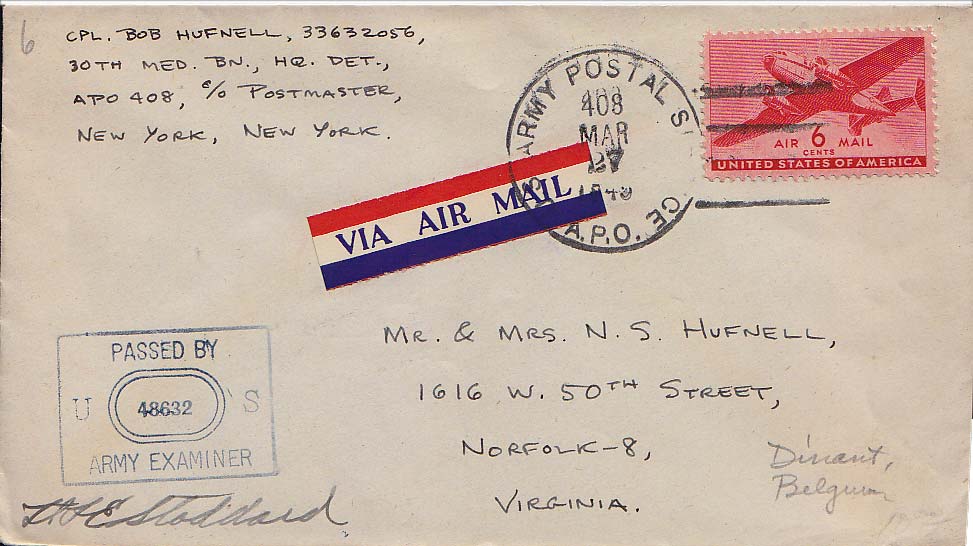 6
CPL. BOB HUFNELL, 33632056,
30TH MED. BN., HQ. DET.,
APO 408, c/o POSTMASTER,
NEW YORK, NEW YORK.
ARMY POSTAL
408
MAR
27
A.P.O.
AIR 6 MAIL
CENTS
UNITED STATES OF AMERICA
VIA AIR MAIL
MR. & MRS. N. S. HUFNELL,
1616 W. 50TH STREET,
NORFOLK-8,
VIRGINIA.
PASSED BY
U 48632 S
ARMY EXAMINER
Stoddard
Dinant,
Belgium